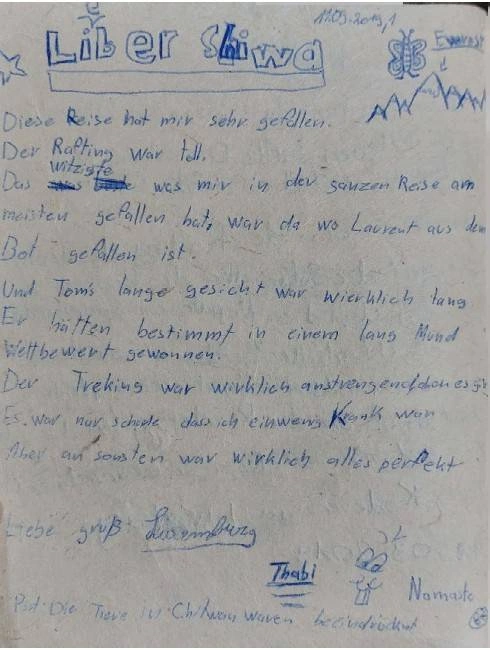 11.09.2019,1
Liber Shiwa
Everest
Diese Reise hat mir sehr gefallen.
Der Rafting war toll.
Das witzigste was mir in der ganzen Reise am
meisten gefallen hat, war da wo Laurent aus dem
Bot gefallen ist.
Und Tom's lange gesicht war wierklich lang
Er hätten bestimmt in einem lang Mund
Wettbewert gewonnen.
Der Treking war wirklich anstrengend
Es war nur schade dass ich einwenig Krank war
Aber an sonsten war wirklich alles perfekt
Liebe gruß Luxemburg
Thabi
Namaste
Die Tiere in Chitwan waren beeindruckent